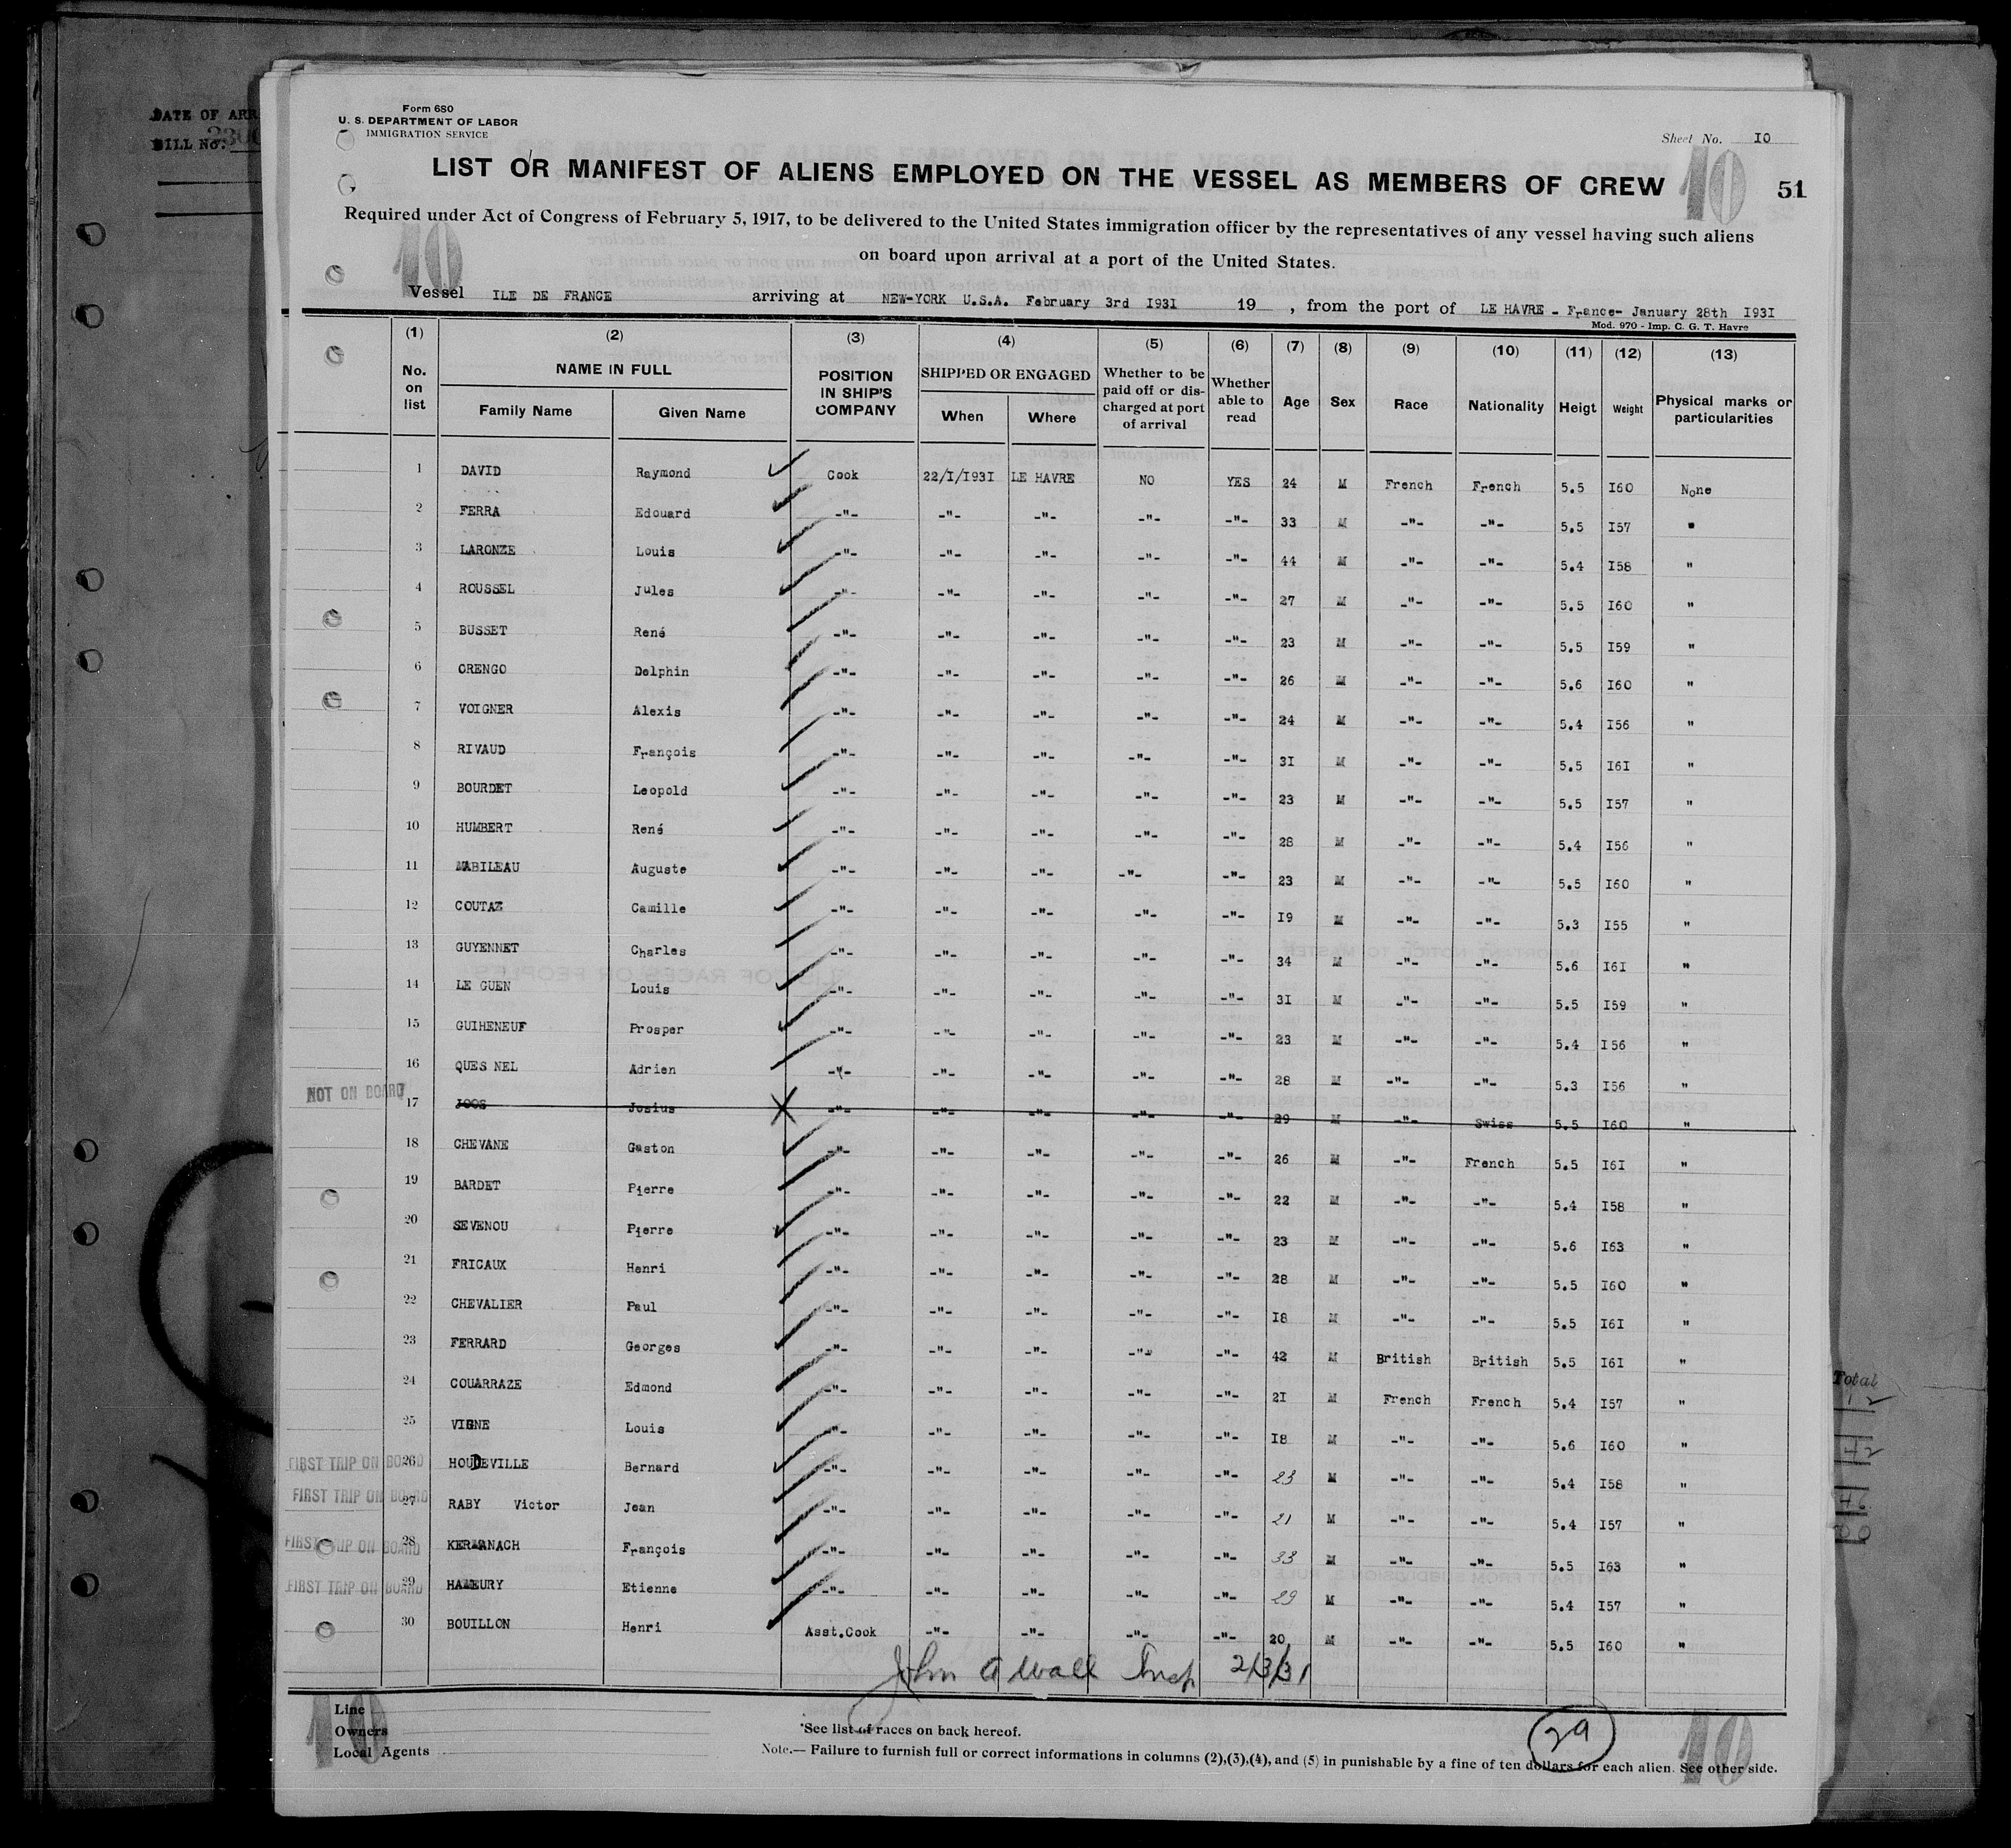 DATE OF ARR
BILL No.
Form 680
U. S. DEPARTMENT OF LABOR
IMMIGRATION SERVICE
Sheet No. I0
LIST OR MANIFEST OF ALIENS EMPLOYED ON THE VESSEL AS MEMBERS OF CREW 10 51
Required under Act of Congress of February 5, 1917, to be delivered to the United States immigration officer by the representatives of any vessel having such aliens
on board upon arrival at a port of the United States.
10
Vessel ILE DE FRANCE arriving at NEW-YORK U.S.A. February 3rd I93I 19 , from the port of LE HAVRE - France- January 28th I93I
Mod. 970 - Imp. C. G. T. Havre
(1) (2) (3) (4) (5) (6) (7) (8) (9) (10) (11) (12) (13)
No. on list NAME IN FULL Family Name Given Name POSITION IN SHIP'S COMPANY SHIPPED OR ENGAGED When Where Whether to be paid off or discharged at port of arrival Whether able to read Age Sex Race Nationality Heigt Weight Physical marks or particularities
1 DAVID Raymond Cook 22/I/I93I LE HAVRE NO YES 24 M French French 5.5 I60 None
2 FERRA Edouard -"- -"- -"- -"- -"- 33 M -"- -"- 5.5 I57 "
3 LARONZE Louis -"- -"- -"- -"- -"- 44 M -"- -"- 5.4 I58 "
4 ROUSSEL Jules -"- -"- -"- -"- -"- 27 M -"- -"- 5.5 I60 "
5 BUSSET René -"- -"- -"- -"- -"- 23 M -"- -"- 5.5 I59 "
6 ORENGO Delphin -"- -"- -"- -"- -"- 26 M -"- -"- 5.6 I60 "
7 VOIGNER Alexis -"- -"- -"- -"- -"- 24 M -"- -"- 5.4 I56 "
8 RIVAUD François -"- -"- -"- -"- -"- 3I M -"- -"- 5.5 I6I "
9 BOURDET Leopold -"- -"- -"- -"- -"- 23 M -"- -"- 5.5 I57 "
10 HUMBERT René -"- -"- -"- -"- -"- 28 M -"- -"- 5.4 I56 "
11 MABILEAU Auguste -"- -"- -"- -"- -"- 23 M -"- -"- 5.5 I60 "
12 COUTAZ Camille -"- -"- -"- -"- -"- I9 M -"- -"- 5.3 I55 "
13 GUYENNET Charles -"- -"- -"- -"- -"- 34 M -"- -"- 5.6 I6I "
14 LE GUEN Louis -"- -"- -"- -"- -"- 3I M -"- -"- 5.5 I59 "
15 GUIHENEUF Prosper -"- -"- -"- -"- -"- 23 M -"- -"- 5.4 I56 "
16 QUES NEL Adrien -"- -"- -"- -"- -"- 28 M -"- -"- 5.3 I56 "
NOT ON BOARD 17 JOOS Josius -"- -"- -"- -"- -"- 29 M -"- Swiss 5.5 I60 "
18 CHEVANE Gaston -"- -"- -"- -"- -"- 26 M -"- French 5.5 I6I "
19 BARDET Pierre -"- -"- -"- -"- -"- 22 M -"- -"- 5.4 I58 "
20 SEVENOU Pierre -"- -"- -"- -"- -"- 23 M -"- -"- 5.6 I63 "
21 FRICAUX Henri -"- -"- -"- -"- -"- 28 M -"- -"- 5.5 I60 "
22 CHEVALIER Paul -"- -"- -"- -"- -"- I8 M -"- -"- 5.5 I6I "
23 FERRARD Georges -"- -"- -"- -"- -"- 42 M British British 5.5 I6I "
24 COUARRAZE Edmond -"- -"- -"- -"- -"- 2I M French French 5.4 I57 "
25 VIGNE Louis -"- -"- -"- -"- -"- I8 M -"- -"- 5.6 I60 "
FIRST TRIP ON BOARD 26 HOUDEVILLE Bernard -"- -"- -"- -"- -"- 23 M -"- -"- 5.4 I58 "
FIRST TRIP ON BOARD 27 RABY Victor Jean -"- -"- -"- -"- -"- 21 M -"- -"- 5.4 I57 "
FIRST TRIP ON BOARD 28 François -"- -"- -"- -"- -"- 33 M -"- -"- 5.5 I63 "
FIRST TRIP ON BOARD 29 Etienne -"- -"- -"- -"- -"- 29 M -"- -"- 5.4 I57 "
30 BOUILLON Henri Asst.Cook -"- -"- -"- -"- 20 M -"- -"- 5.5 I60 "
John A Wall Insp 2/3/31
Line
Owners
Local Agents
10
*See list of races on back hereof.
Note.— Failure to furnish full or correct informations in columns (2),(3),(4), and (5) in punishable by a fine of ten dollars for each alien. See other side.
29
10
Total